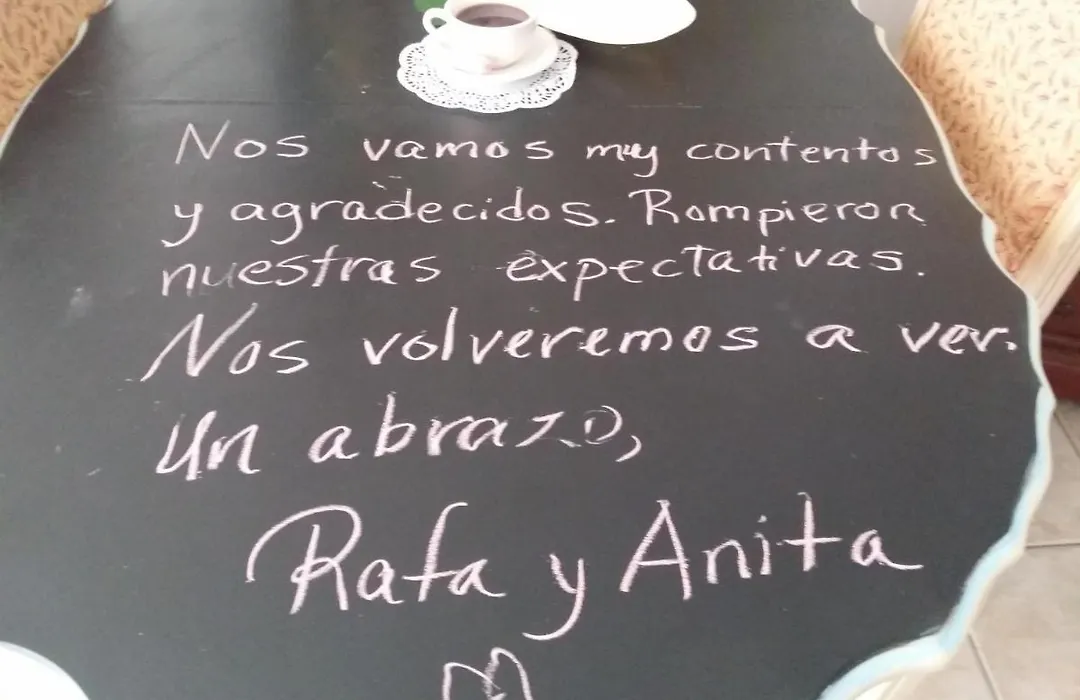 Nos vamos muy contentos
y agradecidos. Rompieron
nuestras expectativas.
Nos volveremos a ver.
Un abrazo,
Rafa y Anita